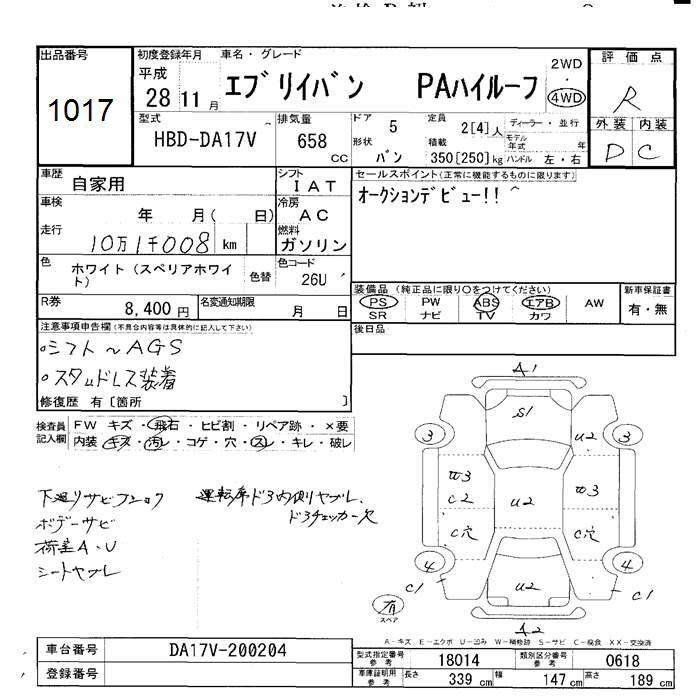 出品番号
1017
初度登録年月
平成
28 11 月
車名・グレード
エブリイバン PAハイルーフ
2WD
・
4WD
評価点
R
外装 内装
D C
型式
HBD-DA17V
排気量
658
cc
ドア
5
形状
バン
定員
2[4]人
積載
350[250]kg
ディーラー・並行
モデル年式 年
ハンドル 左・右
車歴
自家用
シフト
IAT
車検
年 月( 日)
冷房
AC
走行
10万1千008 km
燃料
ガソリン
色
ホワイト(スペリアホワイト)
色替
色コード
26U
R券
8,400 円
名変通知期限
月 日
セールスポイント(正常に機能するものに限ります)
オークションデビュー!!
装備品(純正品に限り○をつけてください)
PS PW ABS エアB AW
SR ナビ TV カワ
新車保証書
有・無
後日品
注意事項申告欄(不具合内容等は具体的に記入して下さい)
○シフト~AGS
○スタッドレス装着
修復歴 有〔箇所 〕
検査員記入欄
FW キズ・飛石・ヒビ割・リペア跡・×要
内装 キズ・汚レ・コゲ・穴・スレ・キレ・破レ
下廻りサビ
ボデーサビ
荷室A・U
シートヤブレ
運転席ドア内側ヤブレ、
ドアチェッカー欠
A1
S1
3
U2
3
W3
C2
U2
W3
C穴
C穴
4
4
C1
U2
C1
有
スペア
A2
A-キズ E-エクボ U-凹み W-補修跡 S-サビ C-腐食 XX-交換済
車台番号
DA17V-200204
登録番号
型式指定番号
参考
18014
類別区分番号
参考
0618
車庫証明用
参考
長さ 339 cm 幅 147 cm 高さ 189 cm